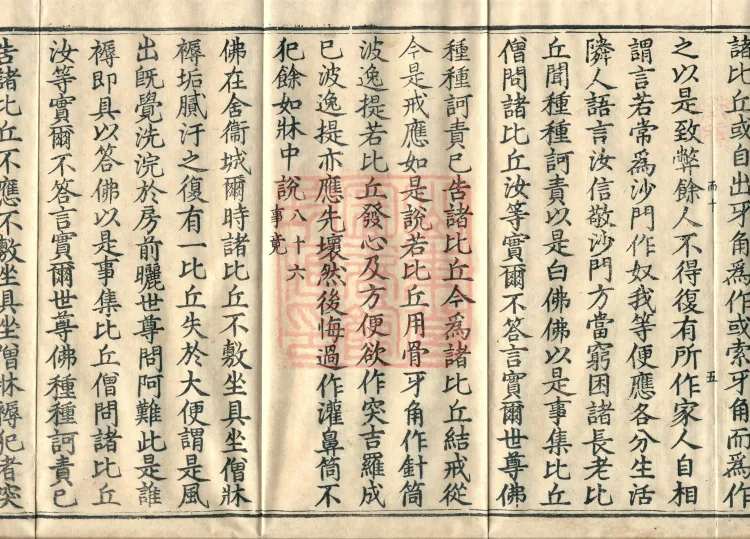 諸比丘或自出牙角為作或索牙角而為作
之以是致弊餘人不得復有所作家人自相
謂言若常為沙門作奴我等便應各分生活
隣人語言汝信敬沙門方當窮困諸長老比
丘聞種種訶責以是白佛佛以是事集比丘
僧問諸比丘汝等實爾不答言實爾世尊佛
種種訶責已告諸比丘今為諸比丘結戒從
今是戒應如是說若比丘用骨牙角作針筒
波逸提若比丘發心及方便欲作突吉羅成
已波逸提亦應先壞然後悔過作灌鼻筒不
犯餘如牀中說八十六事竟
佛在舍衞城爾時諸比丘不敷坐具坐僧牀
褥垢膩汙之復有一比丘失於大便謂是風
出旣覺洗浣於房前曬世尊問阿難此是誰
褥即具以答佛以是事集比丘僧問諸比丘
汝等實爾不答言實爾世尊佛種種訶責已
告諸比丘不應不敷坐具坐僧牀褥犯者突
五